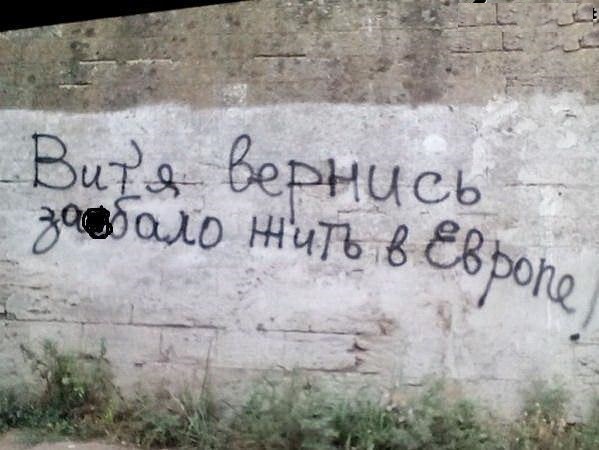 Вит'я вернись
забало жить в Европе!